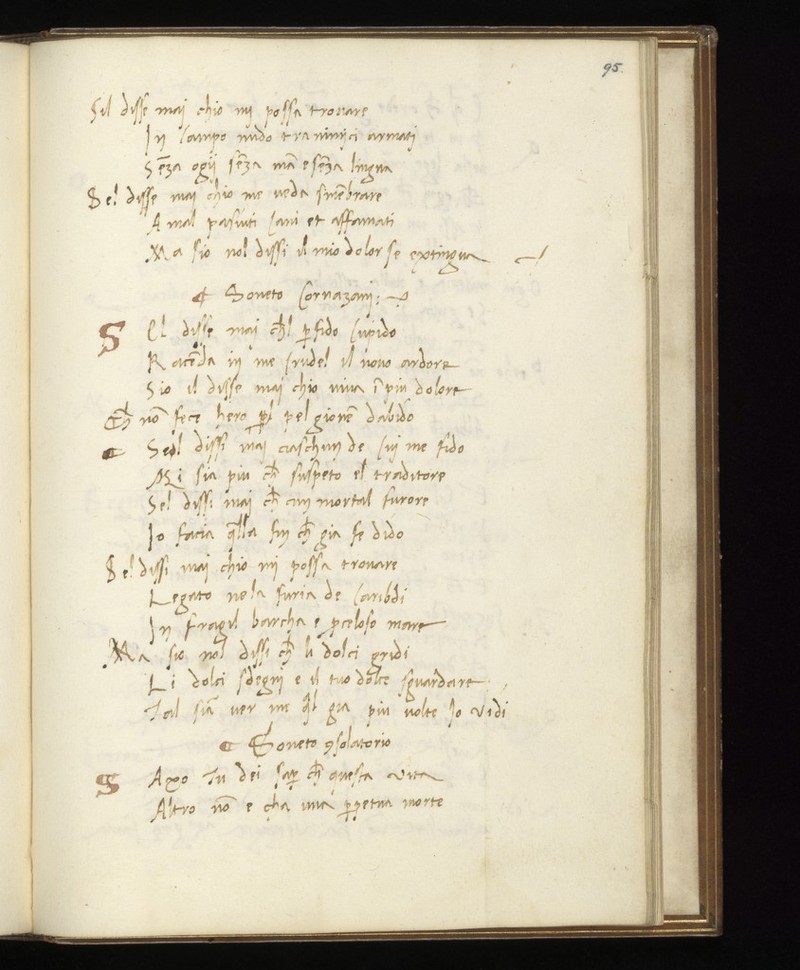 95.
Sil disse mai chio mi possa trovare
In Campo nudo tra nimici armati
Sẽza ogij sẽza mã e sẽza lingua
Sel disse mai chio me veda smẽbrare
A mal pasiuti Cani et affamati
Ma sio nol dissi il mio dolor se extingua
Soneto Cornazani:
S El disse mai ch̃l p̱fido Cupido
Racẽda in me Crudel il novo ardore
Sio il disse mai chio viva ĩ piu dolore
Ch̃ nõ fece hero pel gionẽ dabido
Sel dissi mai ciaschun de cui me fido
Mi sia piu ch̃ suspeto el traditore
Sel dissi mai ch̃ cun mortal furore
Io facia q̃lla fin ch̃ gia fe dido
Sel dissi mai chio mi possa trovare
Legato ne la furia de Caribdi
In fragil barcha e p̱celoso mare
Ma sio nol dissi ch̃ li dolci gridi
Li dolci sdegni e il tuo dolce sguardare
Tal siã ver me q̃l gia piu volte Io vidi
Soneto ꝯsolatorio
S Axo Tu dei sap̱ ch̃ questa vita
Altro nõ e cha una p̱petua morte